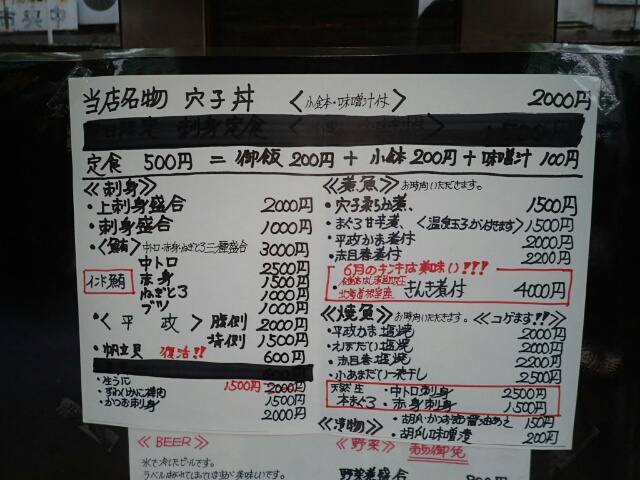 当店名物 穴子丼 〈小鉢・味噌汁付〉 2000円
刺身定食
定食 500円 = 御飯 200円 + 小鉢 200円 + 味噌汁 100円
≪刺身≫
・上刺身盛合 2000円
・刺身盛合 1000円
・〈鮪〉中トロ・赤身・ねぎとろ三種盛合 3000円
インド鮪
中トロ 2500円
赤身 1500円
ねぎとろ 1000円
ブツ 1000円
・〈平政〉 腹側 2000円
背側 1500円
・帆立貝 復活!! 600円
・生うに 1500円 2000円
・ずわいがに棒肉 1500円
・かつお刺身 2000円
≪煮魚≫ お時間いただきます。
・穴子柔らか煮、 1500円
・まぐろ甘辛煮、〈温泉玉子が付きます〉 1500円
・平政かま煮付 2000円
・赤目春煮付 2200円
6月のキンキは美味い!!!
北海道根室産 きんき煮付 4000円
≪焼魚≫ お時間いただきます。≪コゲます!!≫
・平政かま塩焼 2000円
・えぼだい塩焼 2000円
・赤目春塩焼 2200円
・小あまだい一夜干し 2500円
天然生本まぐろ
・中トロ刺身 2500円
・赤身刺身 1500円
≪漬物≫
・胡瓜かつお節醤油あえ 150円
・胡瓜味噌漬 200円
≪BEER≫
氷で冷したビールです。
≪野菜≫
野菜煮盛合